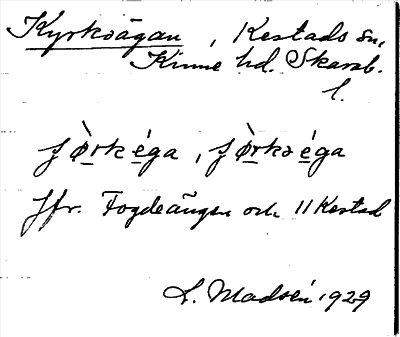 Kyrkoägan, Kestads sn,
Kinne hd. Skarab.
l.
fø̀rkéga, fø̀rkoéga
Jfr. Fogdeängen och 11 Kestad
L. Madsén 1929